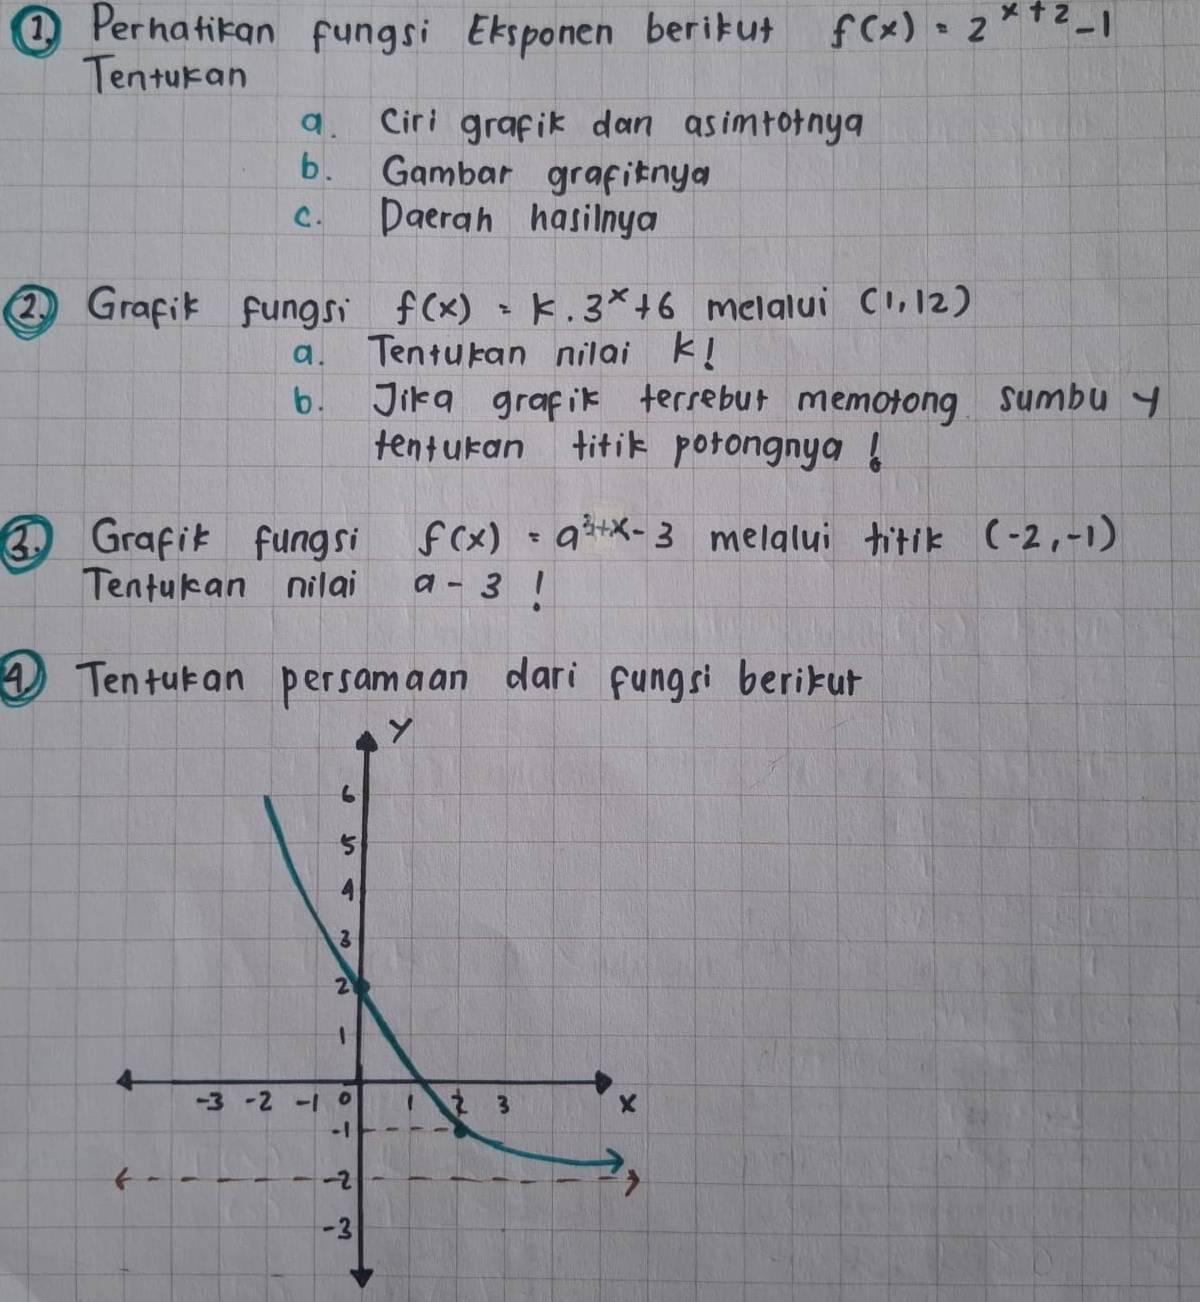 1. Perhatikan fungsi Eksponen berikut f(x) = 2^{x+2} - 1
Tentukan
a. Ciri grafik dan asimtotnya
b. Gambar grafiknya
c. Daerah hasilnya
2. Grafik fungsi f(x) = k . 3^x + 6 melalui (1, 12)
a. Tentukan nilai k!
b. Jika grafik tersebut memotong sumbu y
tentukan titik potongnya !
3. Grafik fungsi f(x) = a^{3+x} - 3 melalui titik (-2, -1)
Tentukan nilai a - 3 !
4. Tentukan persamaan dari fungsi berikut
Y
6
5
4
3
2
1
-3 -2 -1 0 1 2 3 X
-1
-2
-3